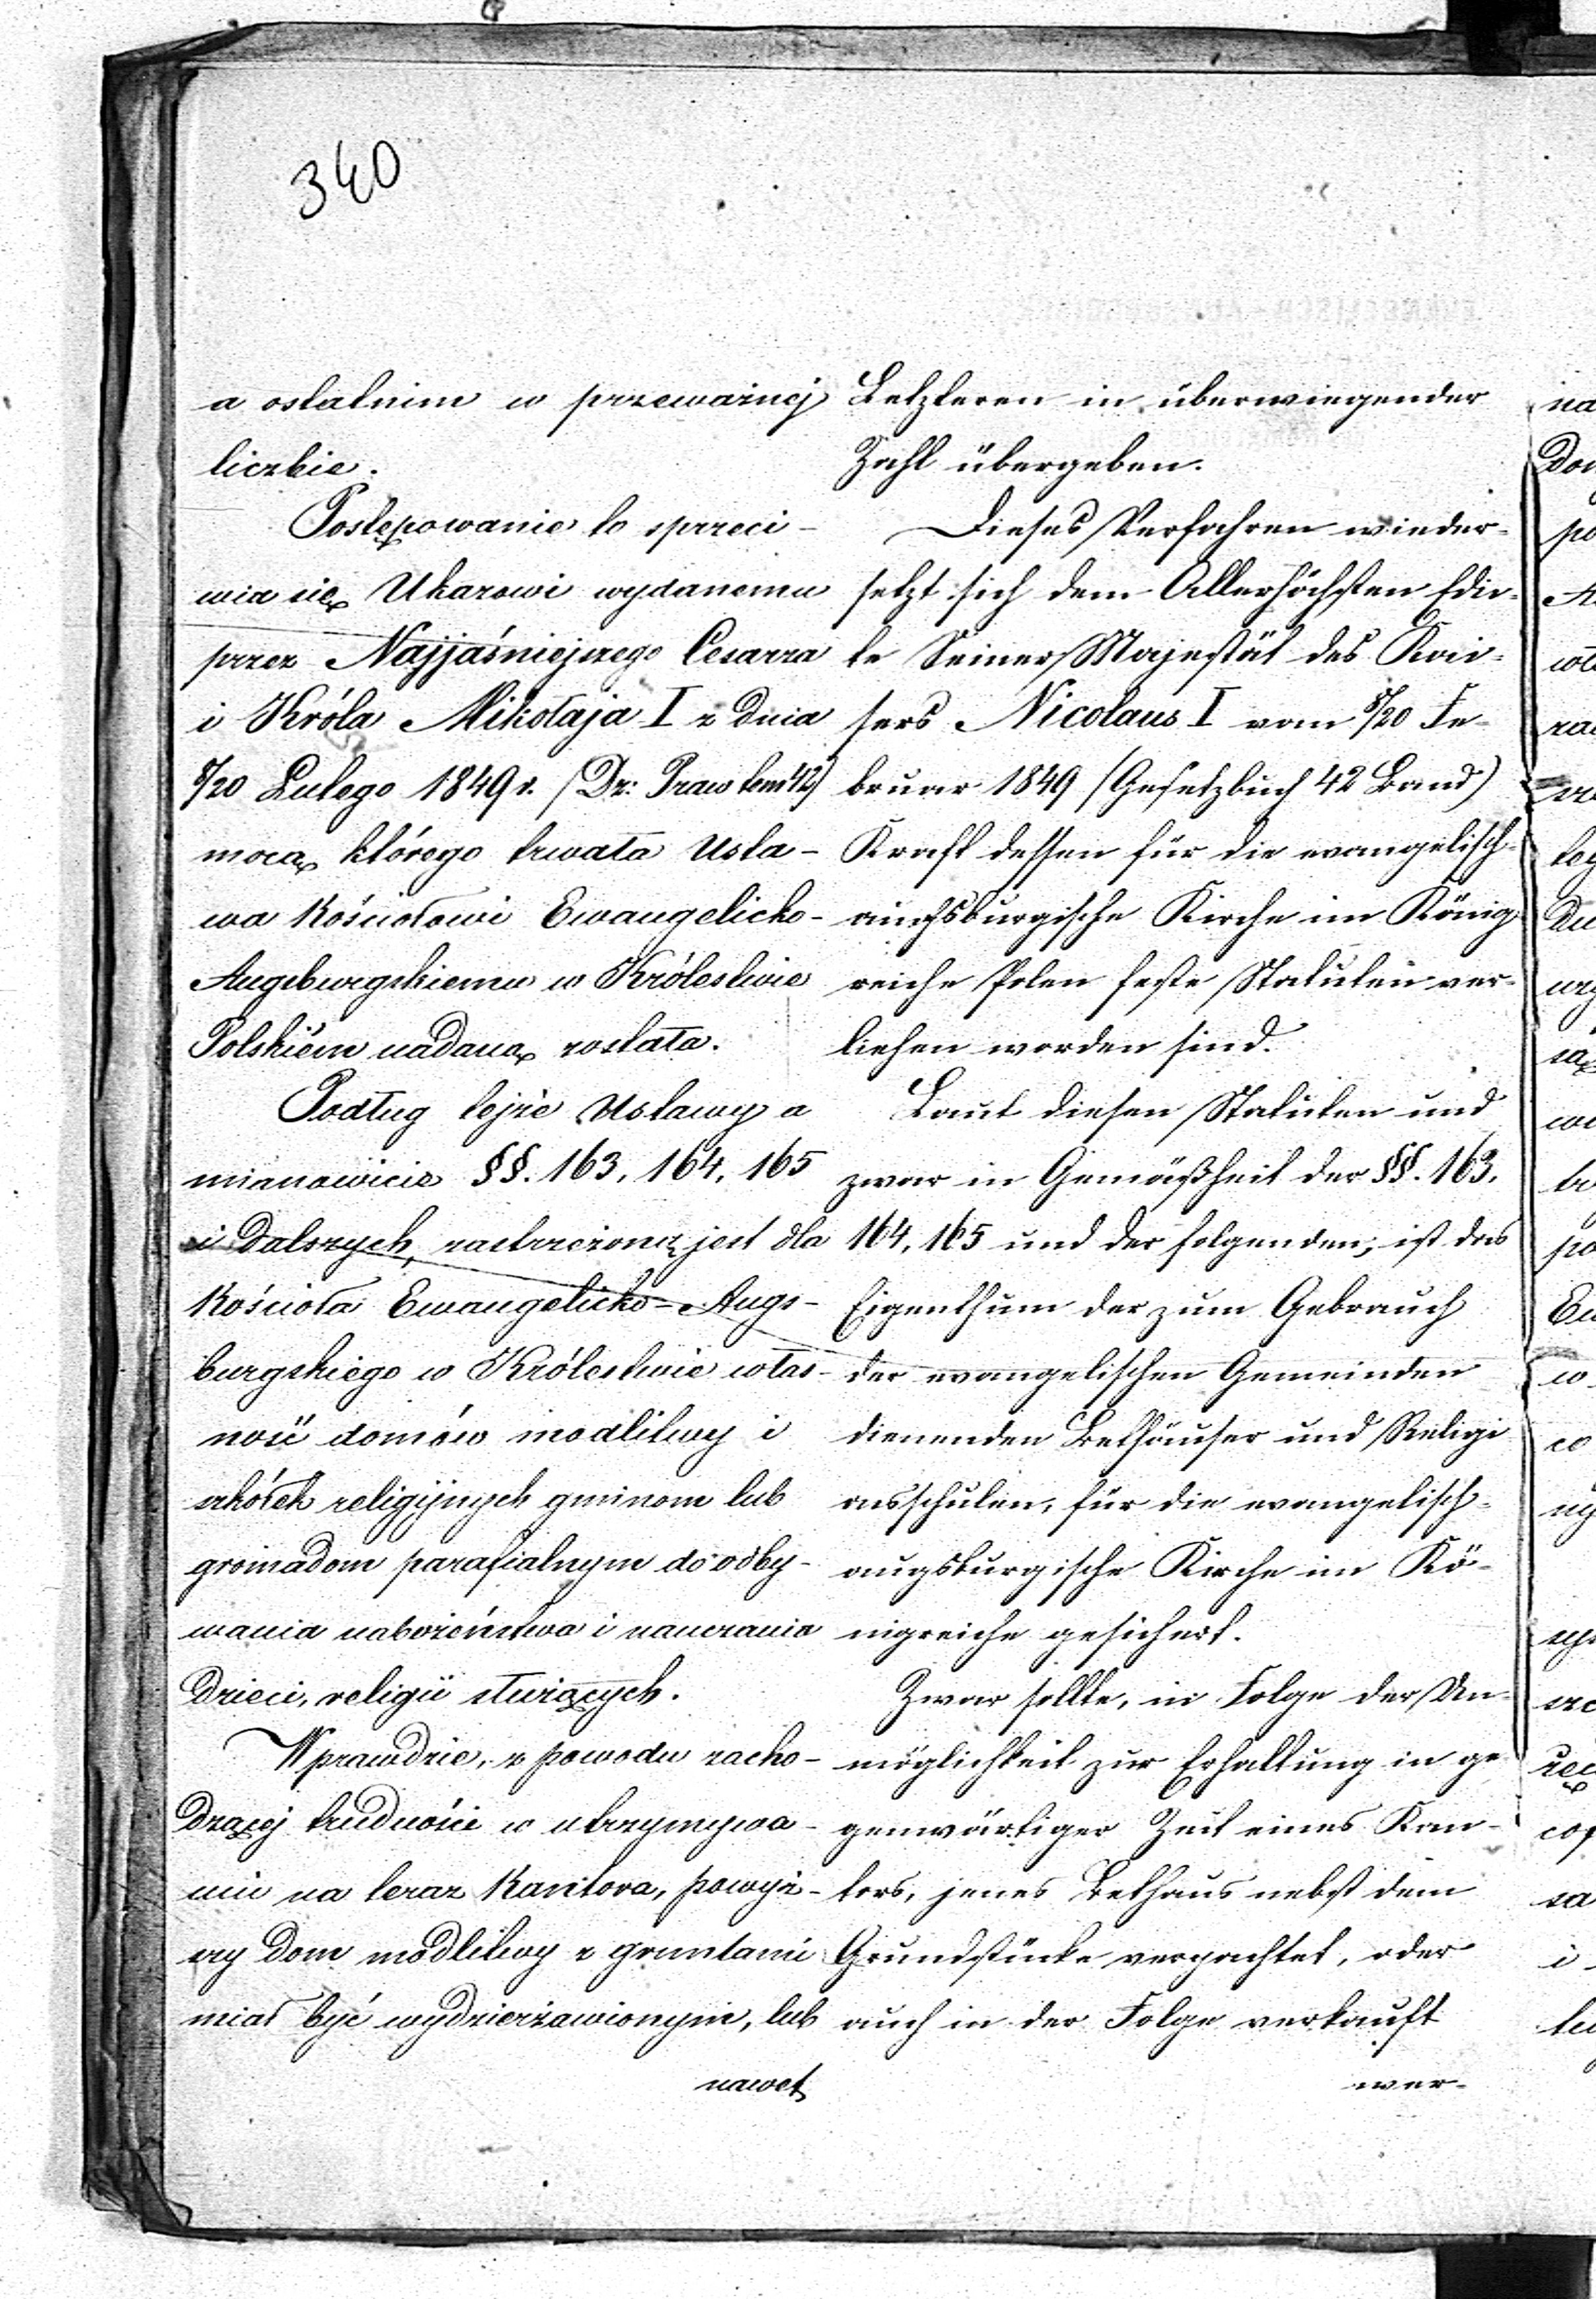 340
a ostatnim w przeważnej
liczbie.
Postępowanie to sprzeci-
wia się Ukazowi wydanemu
przez Najjaśniejszego Cesarza
i Króla Mikołaja I z dnia
8/20 Lutego 1849 r. (Dz: Praw tom 42)
mocą którego trwała Usta-
wa Kościołowi Ewangelicko-
Augsburgskiemu w Królestwie
Polskiém nadaną została.
Podług tejże Ustawy a
mianowicie §§. 163, 164, 165
i dalszych, zastrzeżoną jest dla
Kościoła Ewangelicko-Augs-
burgskiego w Królestwie włas-
ność domów modlitwy i
szkółek religijnych gminom lub
gromadom parafialnym do odby-
wania nabożeństwa i nauczania
dzieci, religii służących.
Wprawdzie, z powodu zacho-
dzącej trudności w utrzymywa-
niu na teraz Kantora, powyż-
szy dom modlitwy z gruntami
miał być wydzierżawionym, lub
nawet
Letzteren in überwiegender
Zahl übergeben.
Dieses Verfahren wieder-
setzt sich dem Allerhöchsten Edic-
te Seiner Majestät des Kai-
sers Nicolaus I vom 8/20 Fe-
bruar 1849 (Gesetzbuch 42 Band)
Kraft dessen für die evangelisch-
augsburgische Kirche im König
reiche Polen feste Statuten ver-
liehen worden sind.
Laut diesen Statuten und
zwar in Gemäßheit der §§. 163,
164, 165 und der folgenden, ist das
Eigenthum der zum Gebrauch
der evangelischen Gemeinden
dienenden Bethäuser und Religi
onsschulen, für die evangelisch-
augsburgische Kirche im Kö-
nigreiche gesichert.
Zwar sollte, in Folge der Un-
möglichkeit zur Erhaltung in ge
genwärtiger Zeit eines Kan-
tors, jenes Bethaus nebst dem
Grundstücke verpachtet, oder
auch in der Folge verkauft
wer-